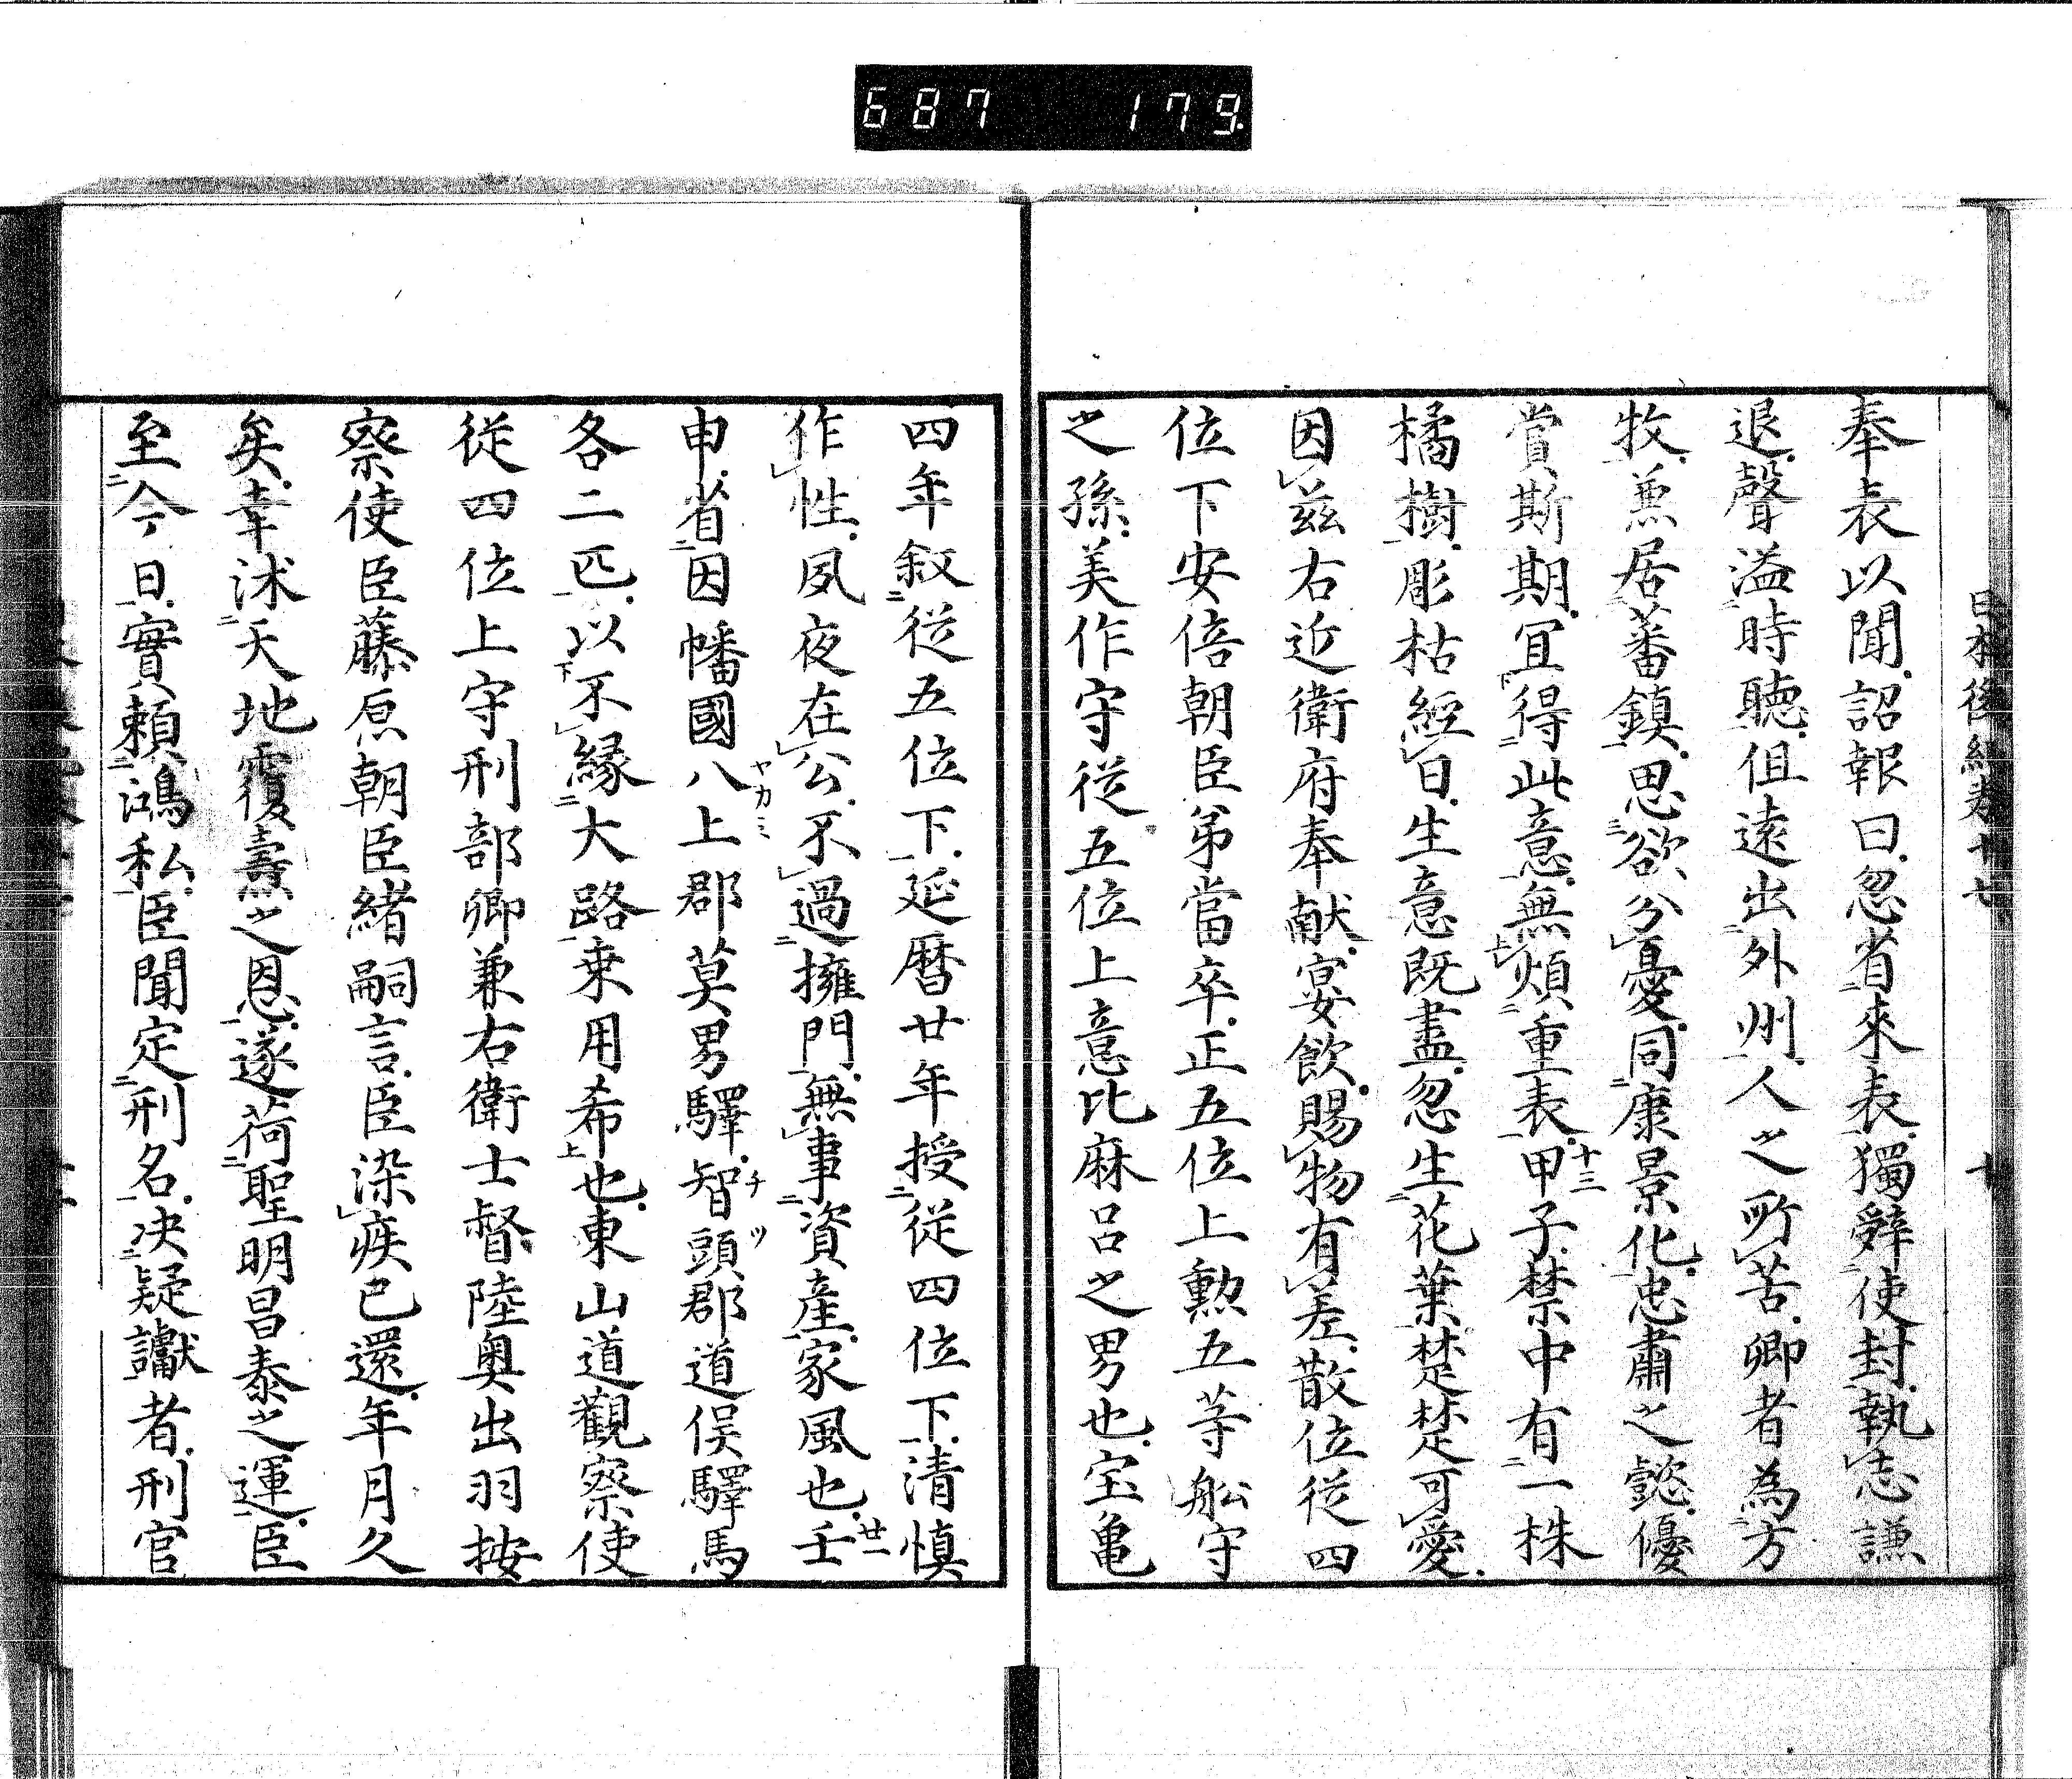 687 179
日本後紀卷十七 十
奉表以聞詔報曰忽省來表獨辭使封執志謙
退聲溢時聽但遠出外州人之所苦卿者為方
牧兼居蕃鎮思欲分憂同康景化忠肅之懿優
賞斯期宜得此意無煩重表甲子禁中有一株
橘樹彫枯經日生意既盡忽生花葉楚楚可愛
因茲右近衛府奉献宴飲賜物有差散位從四
位下安倍朝臣弟當卒正五位上勲五等舩守
之孫美作守從五位上意比麻呂之男也宝亀
四年叙從五位下延暦廿年授從四位下清慎
作性夙夜在公不過擁門無事資產家風也壬
申省因幡國八上郡莫男驛智頭郡道俣驛馬
各二匹以不縁大路乗用希也東山道觀察使
從四位上守刑部卿兼右衛士督陸奥出羽按
察使臣藤原朝臣緒嗣言臣染疾已還年月久
矣幸沭天地覆燾之恩遂荷聖明昌泰之運臣
至今日實頼鴻私臣聞定刑名决疑讞者刑官